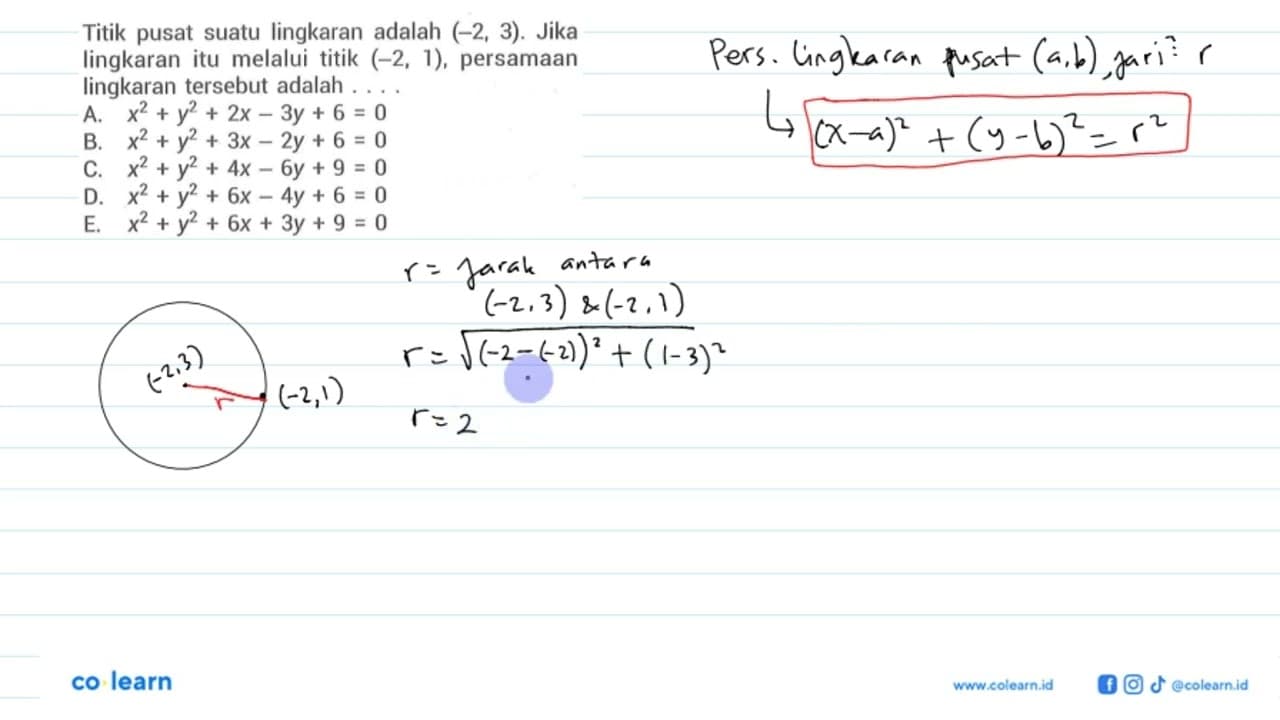 Titik pusat suatu lingkaran adalah (–2, 3). Jika
lingkaran itu melalui titik (–2, 1), persamaan
lingkaran tersebut adalah . . . .
A. x² + y² + 2x – 3y + 6 = 0
B. x² + y² + 3x – 2y + 6 = 0
C. x² + y² + 4x – 6y + 9 = 0
D. x² + y² + 6x – 4y + 6 = 0
E. x² + y² + 6x + 3y + 9 = 0
Pers. lingkaran pusat (a,b), jari² r
↳ (x-a)² + (y-b)² = r²
r = jarak antara
(-2,3) & (-2,1)
r = √(-2-(-2))² + (1-3)²
r = 2
(-2,3)
r
(-2,1)
co learn
www.colearn.id
@colearn.id